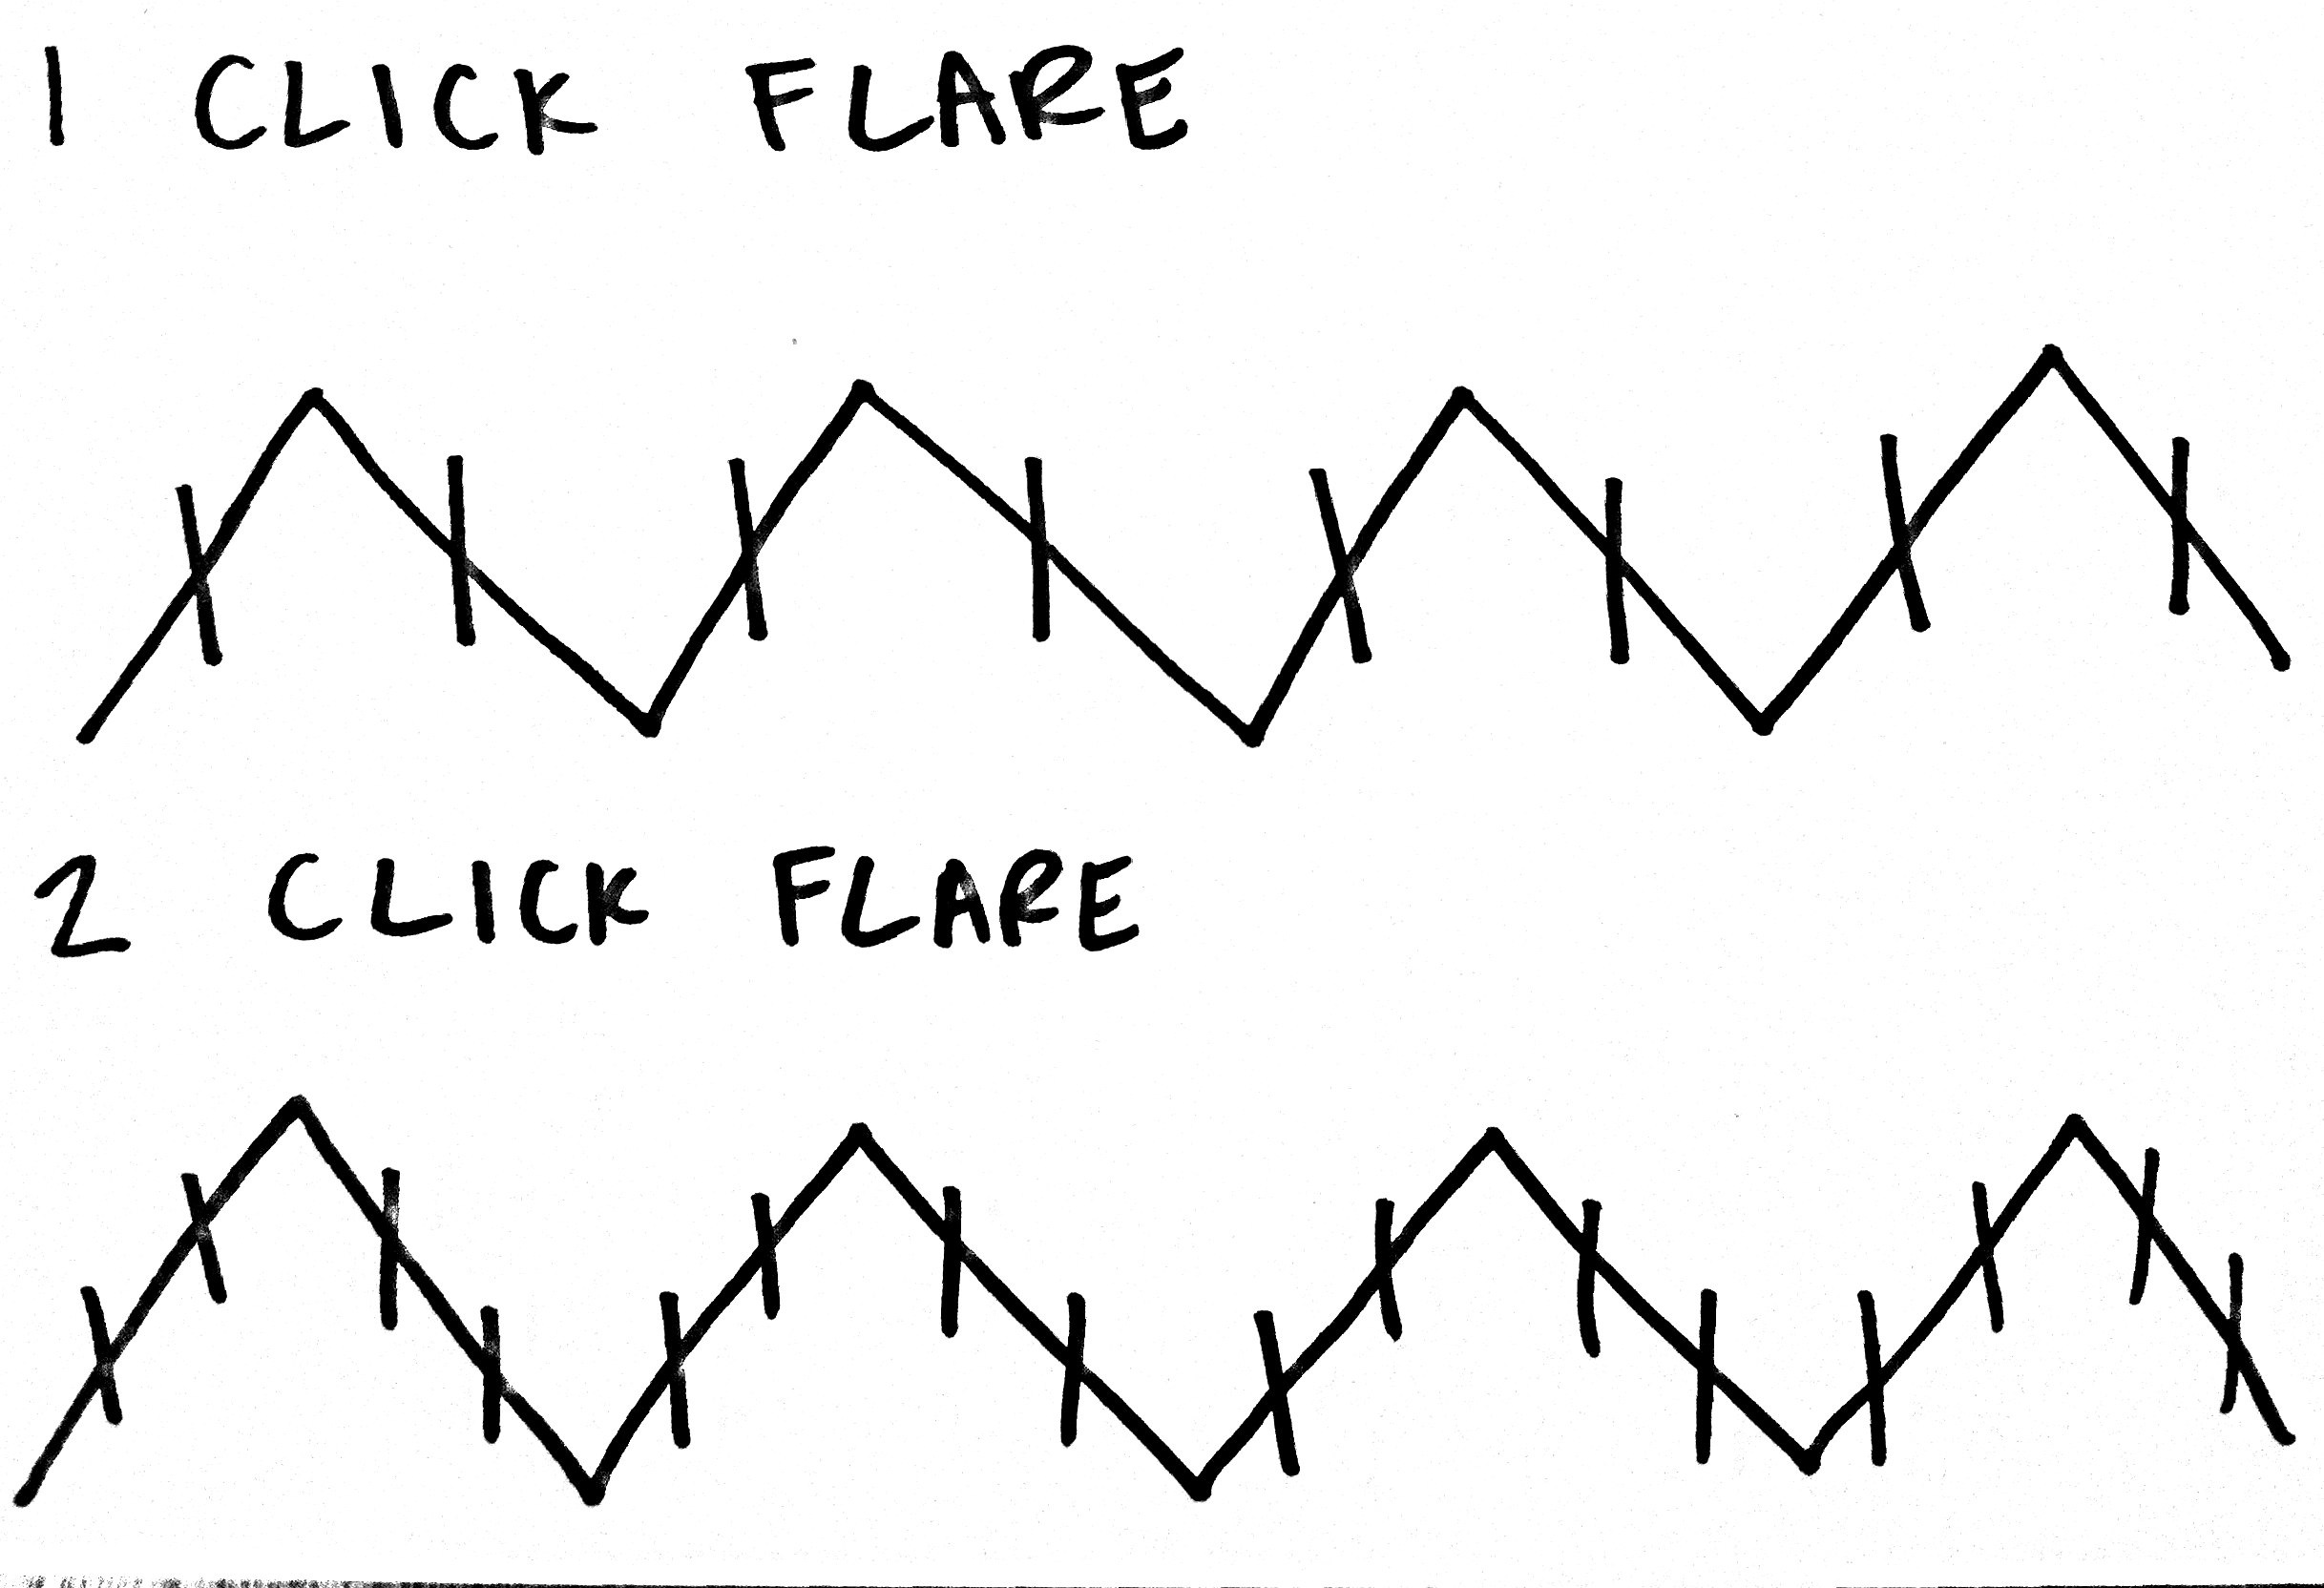 1 CLICK FLARE
2 CLICK FLARE